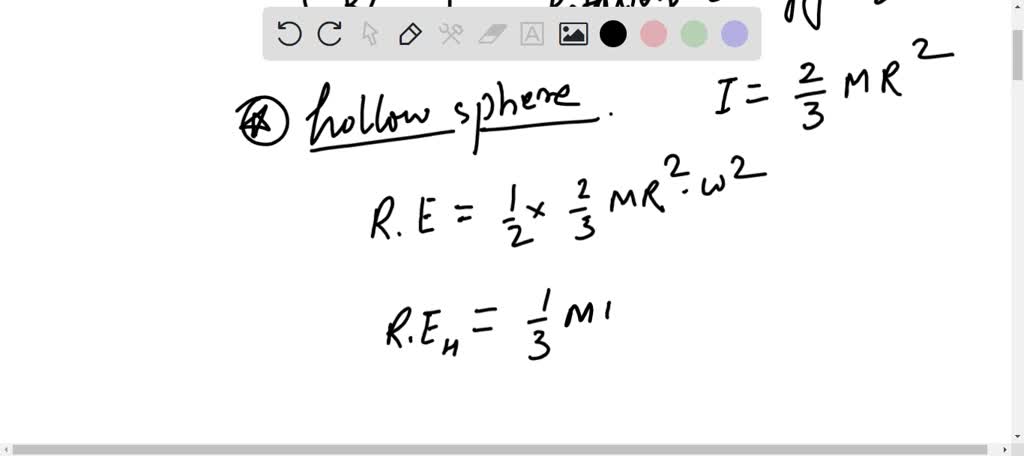 hollow sphere. I = 2/3 MR²
R.E = 1/2 × 2/3 MR². ω²
R.E_H = 1/3 M